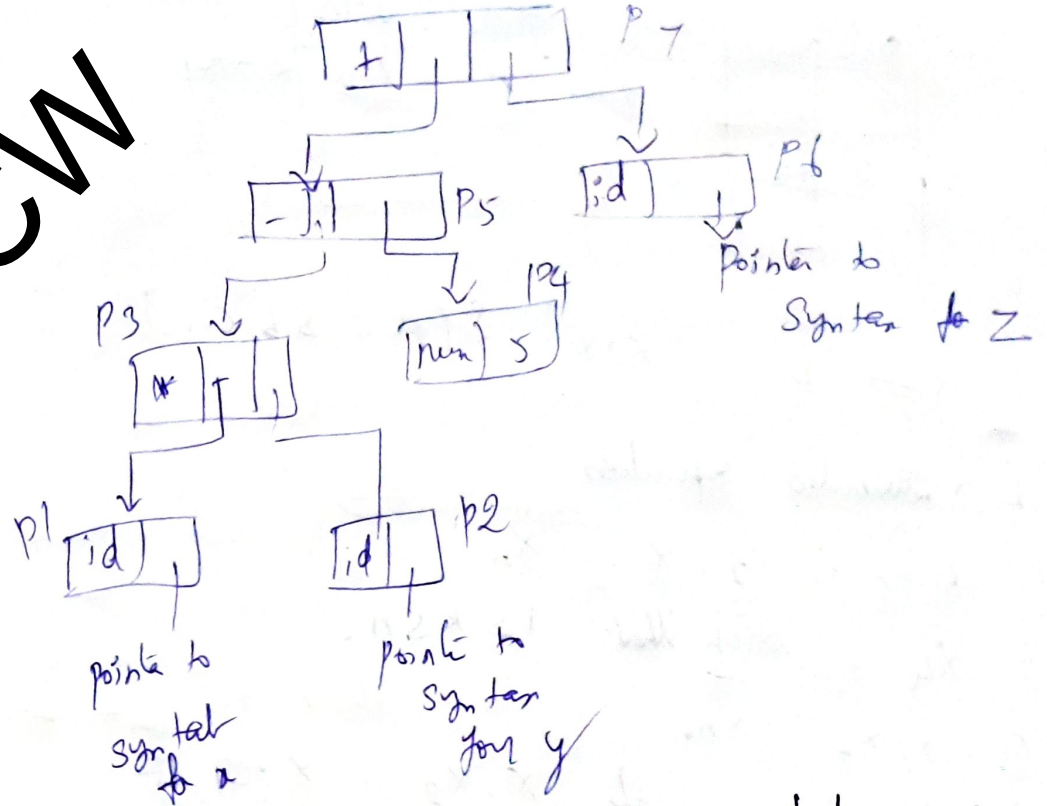 CW
+
P7
id
P6
-
P5
pointer to
Syntax for Z
P3
*
P4
num 5
p1
id
id
p2
pointer to
syntab
for x
pointer to
syntax
for y